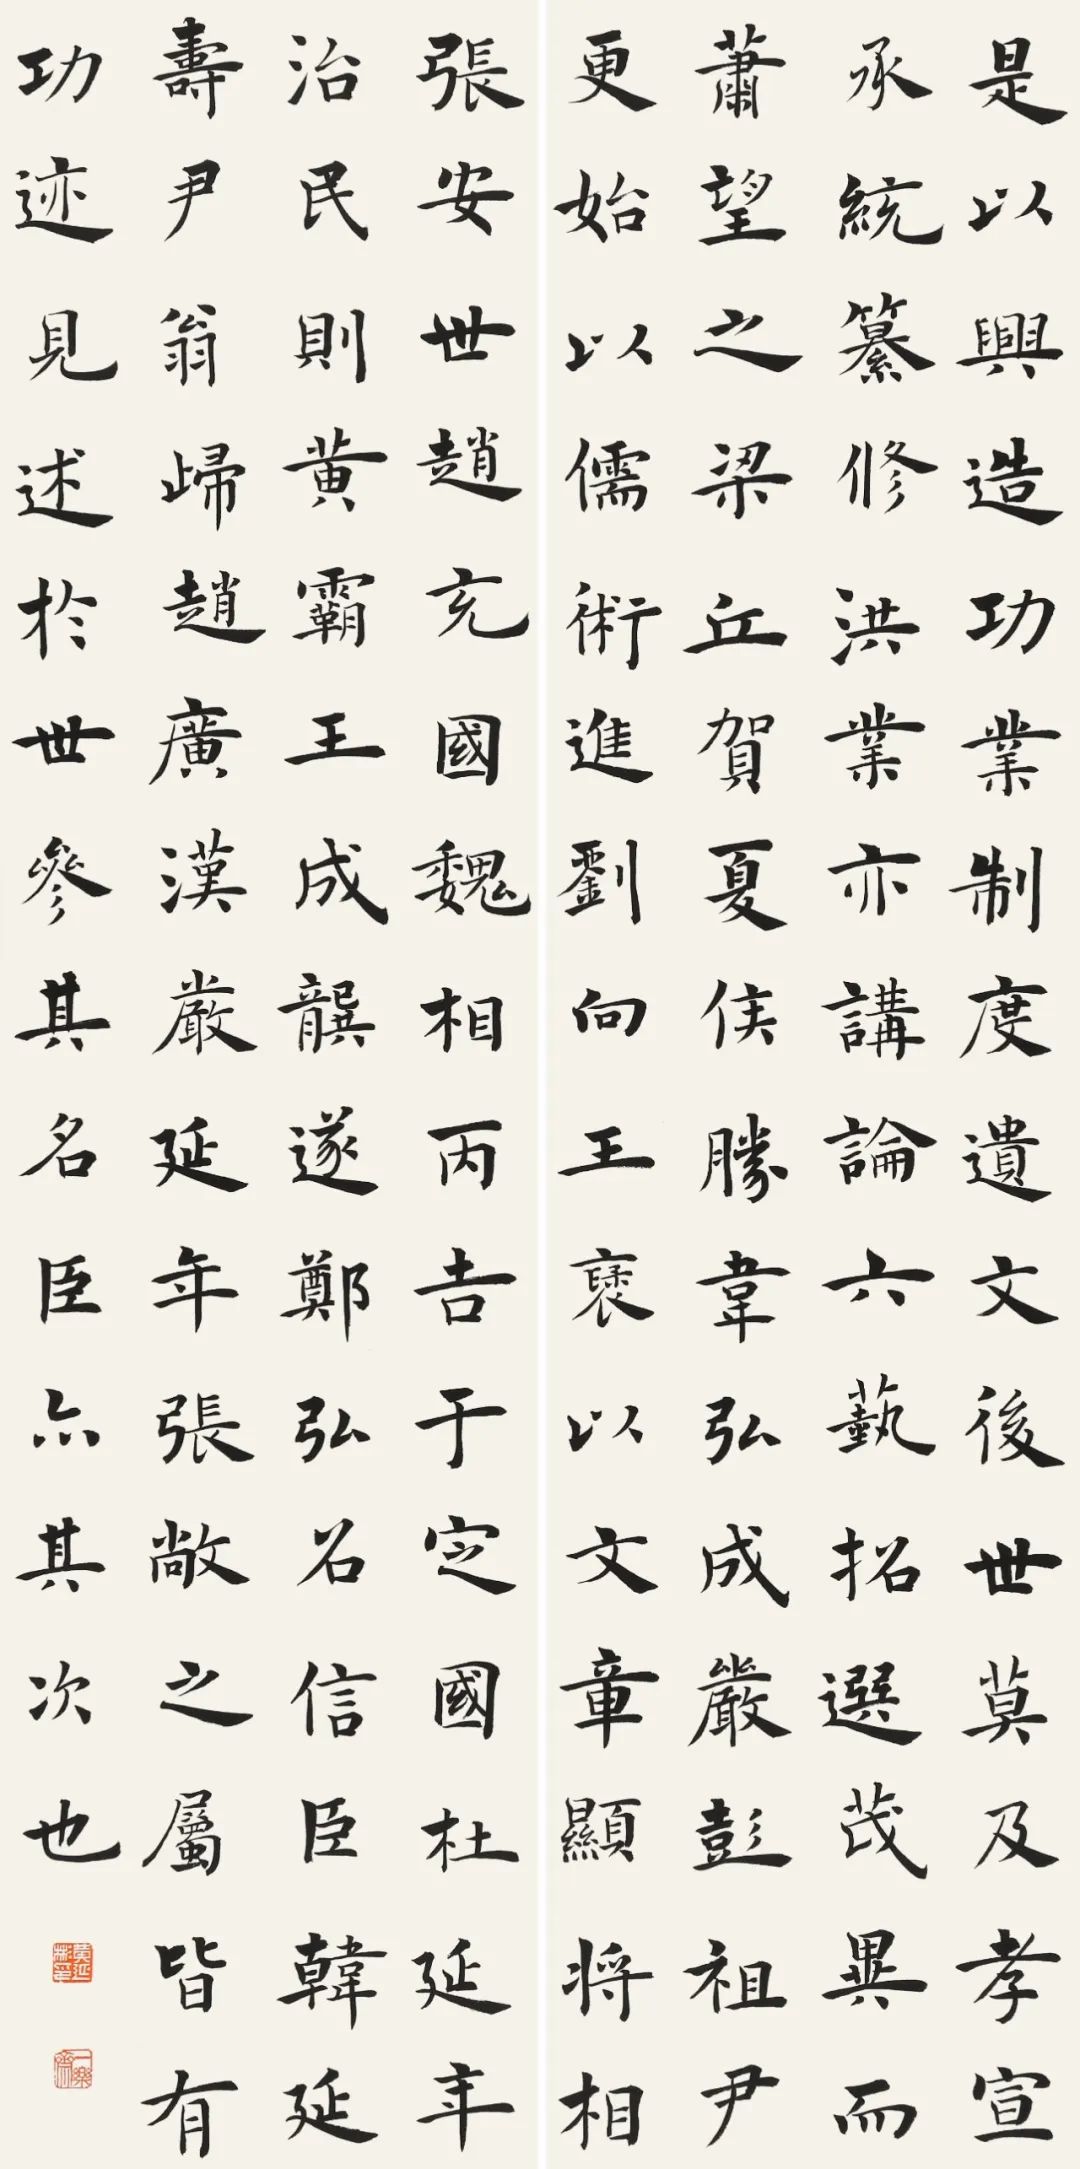 是以興造功業制度遺文後世莫及孝宣
承統纂修洪業亦講論六藝招選茂異而
蕭望之梁丘賀夏侯勝韋弘成嚴彭祖尹
更始以儒術進劉向王襃以文章顯將相
張安世趙充國魏相丙吉于定國杜延年
治民則黃霸王成龔遂鄭弘召信臣韓延
壽尹翁歸趙廣漢嚴延年張敞之屬皆有
功迹見述於世參其名臣亦其次也